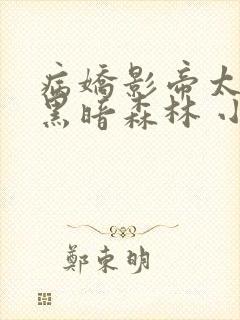 病嬌影帝太
黑暗森林 小
鄭東明